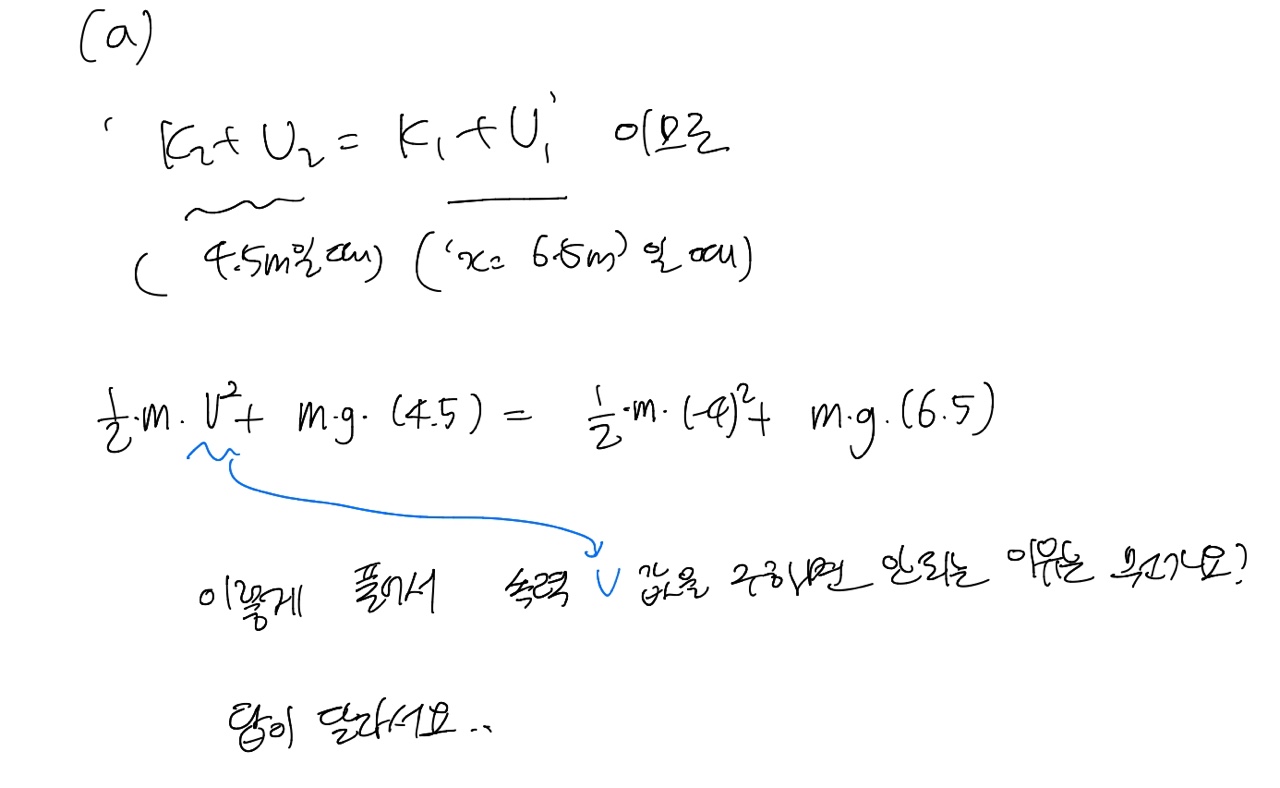 (a)
‘ K₂ + U₂ = K₁ + U₁’ 이므로
( 4.5m일 때) (‘x= 6.5m’ 일 때)
½·m·V² + m·g·(4.5) = ½·m·(-4)² + m·g·(6.5)
이렇게 풀어서 속력 V 값을 구하면 안되는 이유는 무엇인가요?
답이 달라서요..